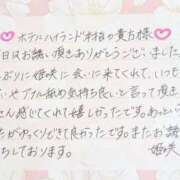 ♡ホテルハイランド本館の貴方様♡
日はお誘い頂きありがとうございました。
ぶりに姫咲に会いに来てくれて、いつも
いやアナル舐め気持ち良いと言って頂き
さん感じてくれて嬉しかったです。あっとい
たがゆっくりできて良かったです。またお誘
ちしております。
姫咲